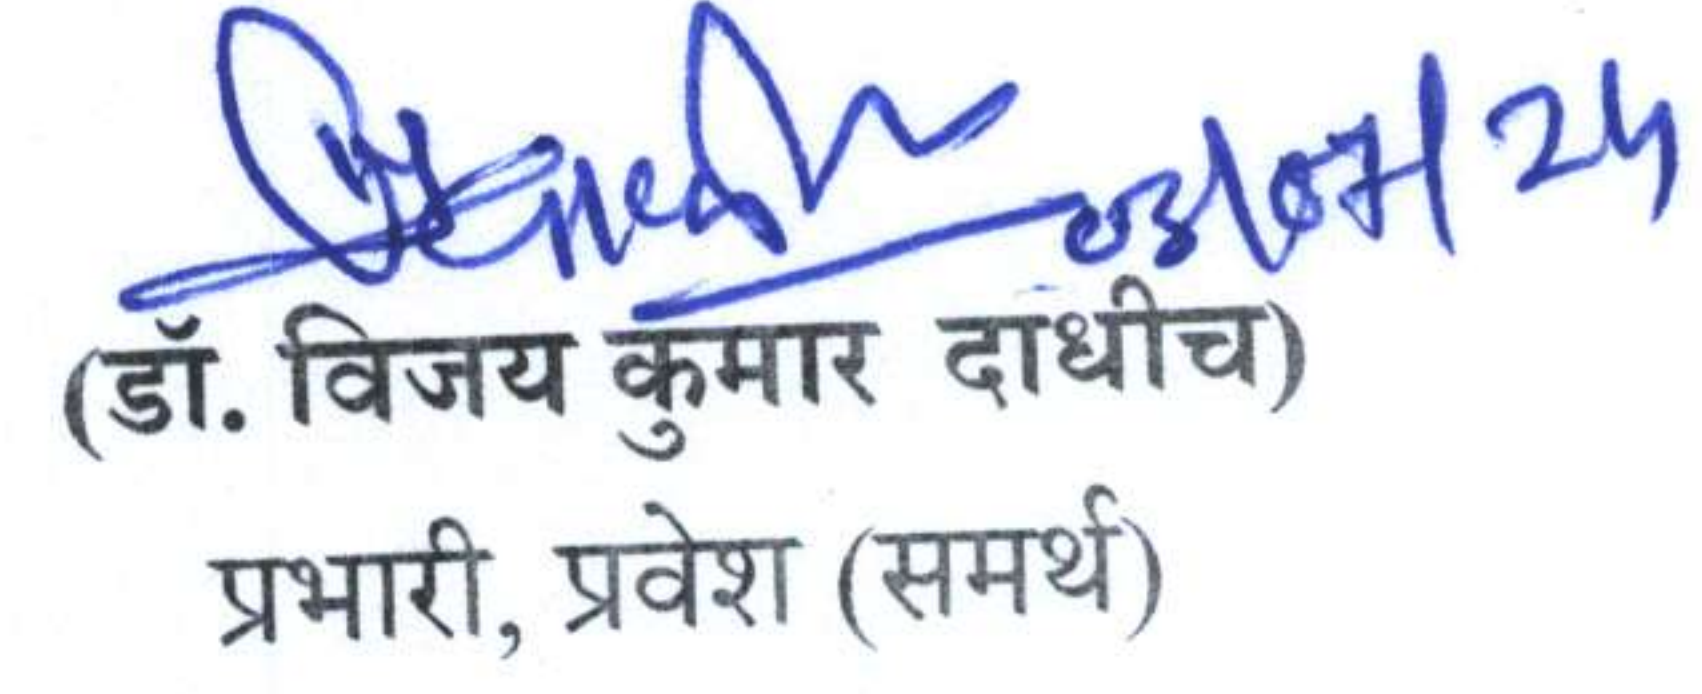 03/07/24
(डॉ. विजय कुमार दाधीच)
प्रभारी, प्रवेश (समर्थ)